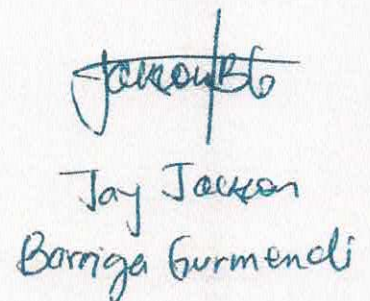 JacksonBG
Jay Jackson
Barriga Gurmendi